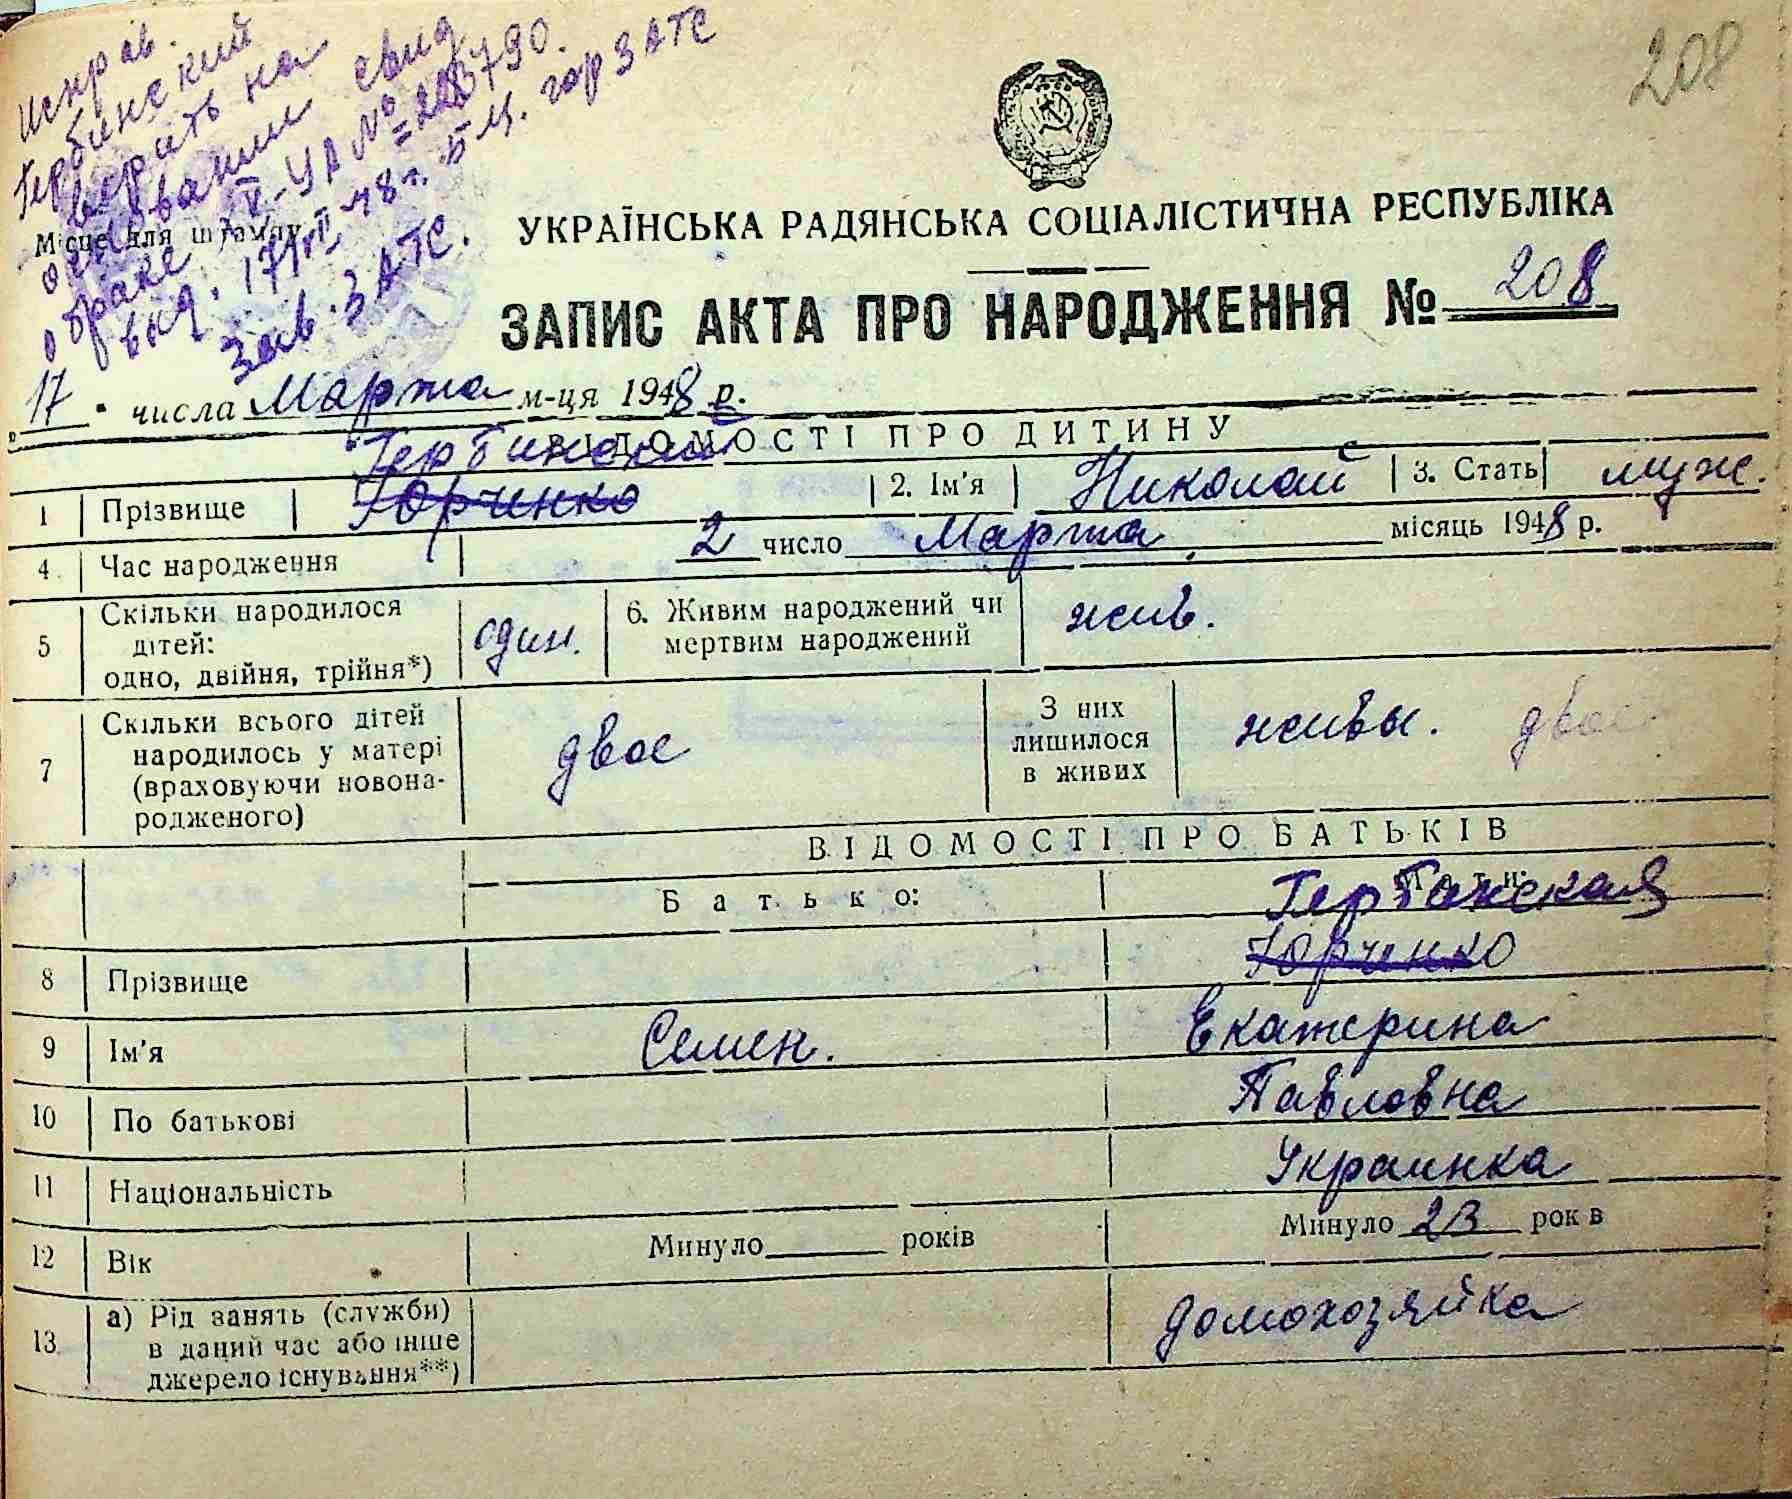 208
Исправ.
Гербинский
верить на
основании свид
о браке V-УА № 208790.
выд. 17/VII 48 г. БЦ. гор ЗАГС
Зав. ЗАГС.
Місце для штампу
УКРАЇНСЬКА РАДЯНСЬКА СОЦІАЛІСТИЧНА РЕСПУБЛІКА
ЗАПИС АКТА ПРО НАРОДЖЕННЯ № 208
„17" числа Марта м-ця 1948 р.
ВІДОМОСТІ ПРО ДИТИНУ
Гербинский
1 Прізвище Юрченко 2. Ім'я Николай 3. Стать муж.
4. Час народження 2 число Марта місяць 1948 р.
5 Скільки народилося дітей: одно, двійня, трійня*) один. 6. Живим народжений чи мертвим народжений жив.
7 Скільки всього дітей народилось у матері (враховуючи новонародженого) двое З них лишилося в живих живы. двое
ВІДОМОСТІ ПРО БАТЬКІВ
Батько: Мати:
Гербинская
8 Прізвище Юрченко
9 Ім'я Семен. Екатерина
10 По батькові Павловна
11 Національність Украинка
12 Вік Минуло років Минуло 23 років
13 а) Рід занять (служби) в даний час або інше джерело існування**) домохозяйка